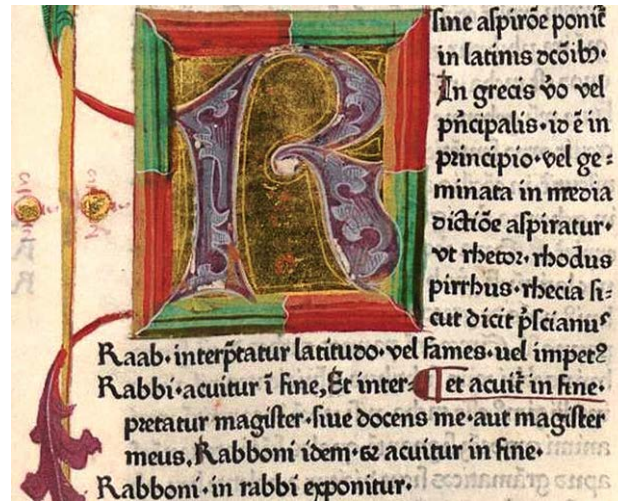 R
sine aspirõe ponit̃
in latinis dcõibꝫ.
In grecis ṽo vel
pñcipalis·id ẽ in
principio·vel ge⸗
minata in media
dictiõe aspiratur·
vt rhetor·rhodus
pirrhus·rhecia si⸗
cut dicit p̃scianꝰ
Raab·interp̃tatur latitudo·vel fames·uel impetꝰ
Rabbi·acuitur ĩ fine, Et inter⸗ ¶ et acuit̃ in fine·
pretatur magister·siue docens me·aut magister
meus, Rabboni idem·⁊ acuitur in fine·
Rabboni·in rabbi exponitur·